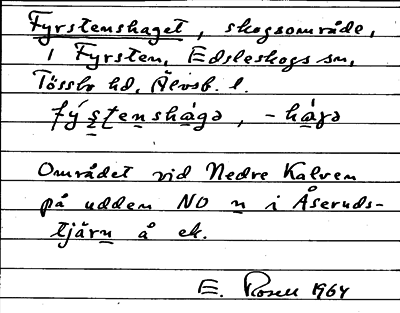 Fyrstenshaget, skogsområde,
i Fyrsten, Edsleskogs sn,
Tössbo hd, Älvsb. l.
fýs̱ṯens̱hágə, -hágə
Området vid Nedre Kalven
på udden NO n i Åseruds-
tjärn å ek.
E. Rosell 1964